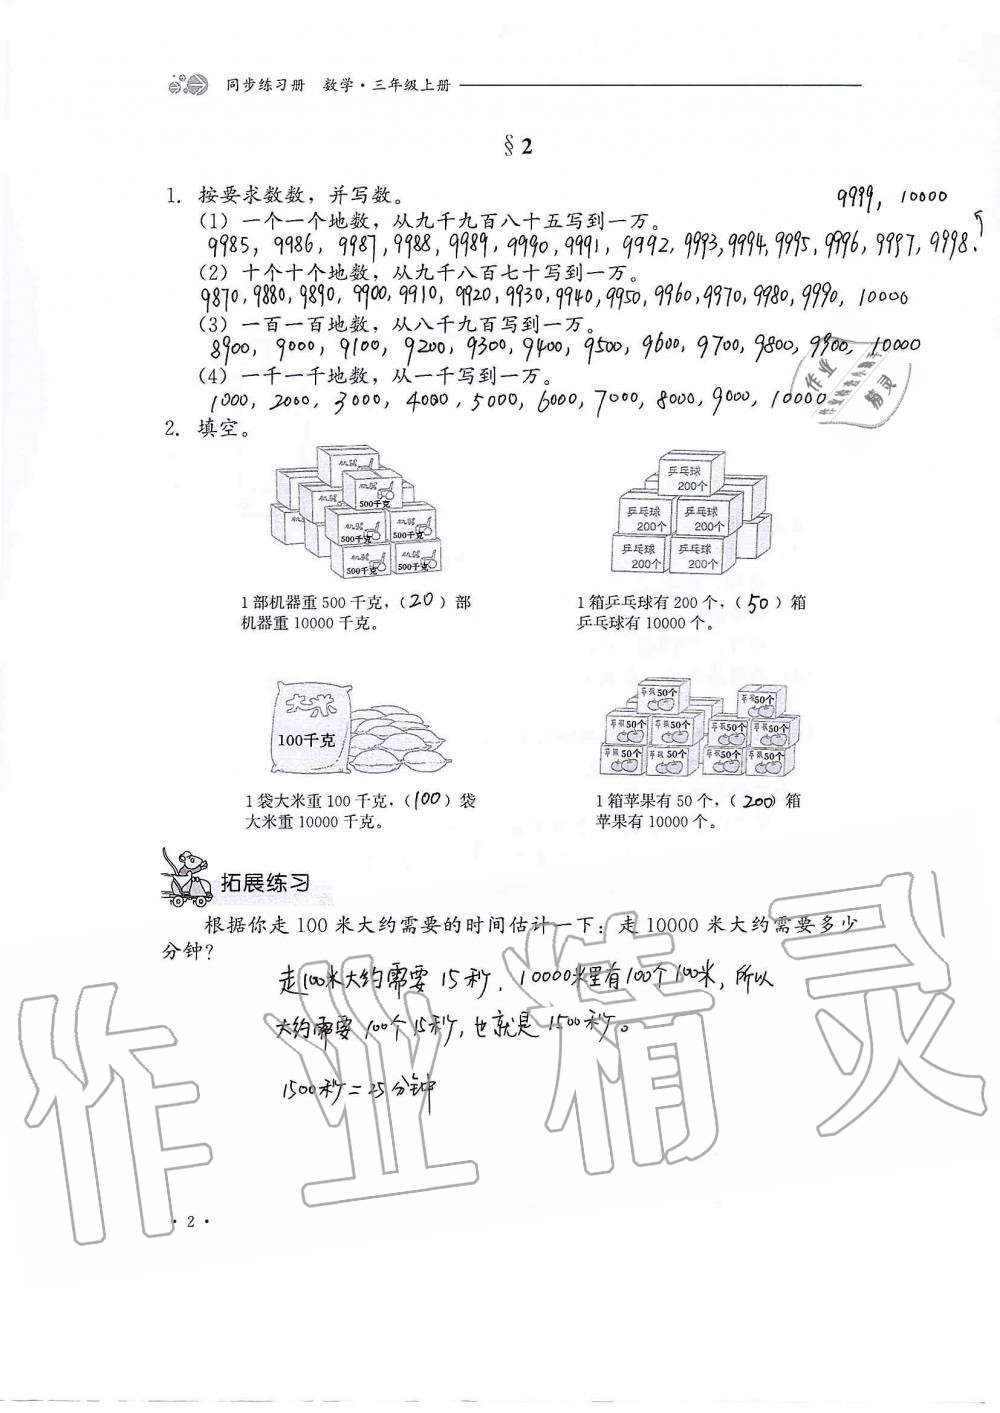 同步练习册 数学·三年级上册
§2
1. 按要求数数，并写数。
(1) 一个一个地数，从九千九百八十五写到一万。
9985, 9986, 9987, 9988, 9989, 9990, 9991, 9992, 9993, 9994, 9995, 9996, 9997, 9998,
9999, 10000
(2) 十个十个地数，从九千八百七十写到一万。
9870, 9880, 9890, 9900, 9910, 9920, 9930, 9940, 9950, 9960, 9970, 9980, 9990, 10000
(3) 一百一百地数，从八千九百写到一万。
8900, 9000, 9100, 9200, 9300, 9400, 9500, 9600, 9700, 9800, 9900, 10000
(4) 一千一千地数，从一千写到一万。
1000, 2000, 3000, 4000, 5000, 6000, 7000, 8000, 9000, 10000
2. 填空。
机器
机器
500千克
机器
500千克
机器
500千克
机器
500千克
机器
500千克
乒乓球
200个
乒乓球
200个
乒乓球
200个
乒乓球
200个
乒乓球
200个
1部机器重500千克，(20)部
机器重10000千克。
1箱乒乓球有200个，(50)箱
乒乓球有10000个。
大米
100千克
苹果50个
苹果50个
苹果50个
苹果50个
苹果50个
苹果50个
苹果50个
苹果50个
苹果50个
苹果50个
1袋大米重100千克，(100)袋
大米重10000千克。
1箱苹果有50个，(200)箱
苹果有10000个。
拓展练习
根据你走100米大约需要的时间估计一下：走10000米大约需要多少
分钟？
走100米大约需要15秒，10000米里有100个100米，所以
大约需要100个15秒，也就是1500秒。
1500秒=25分钟
作业精灵
·2·
作业
精灵